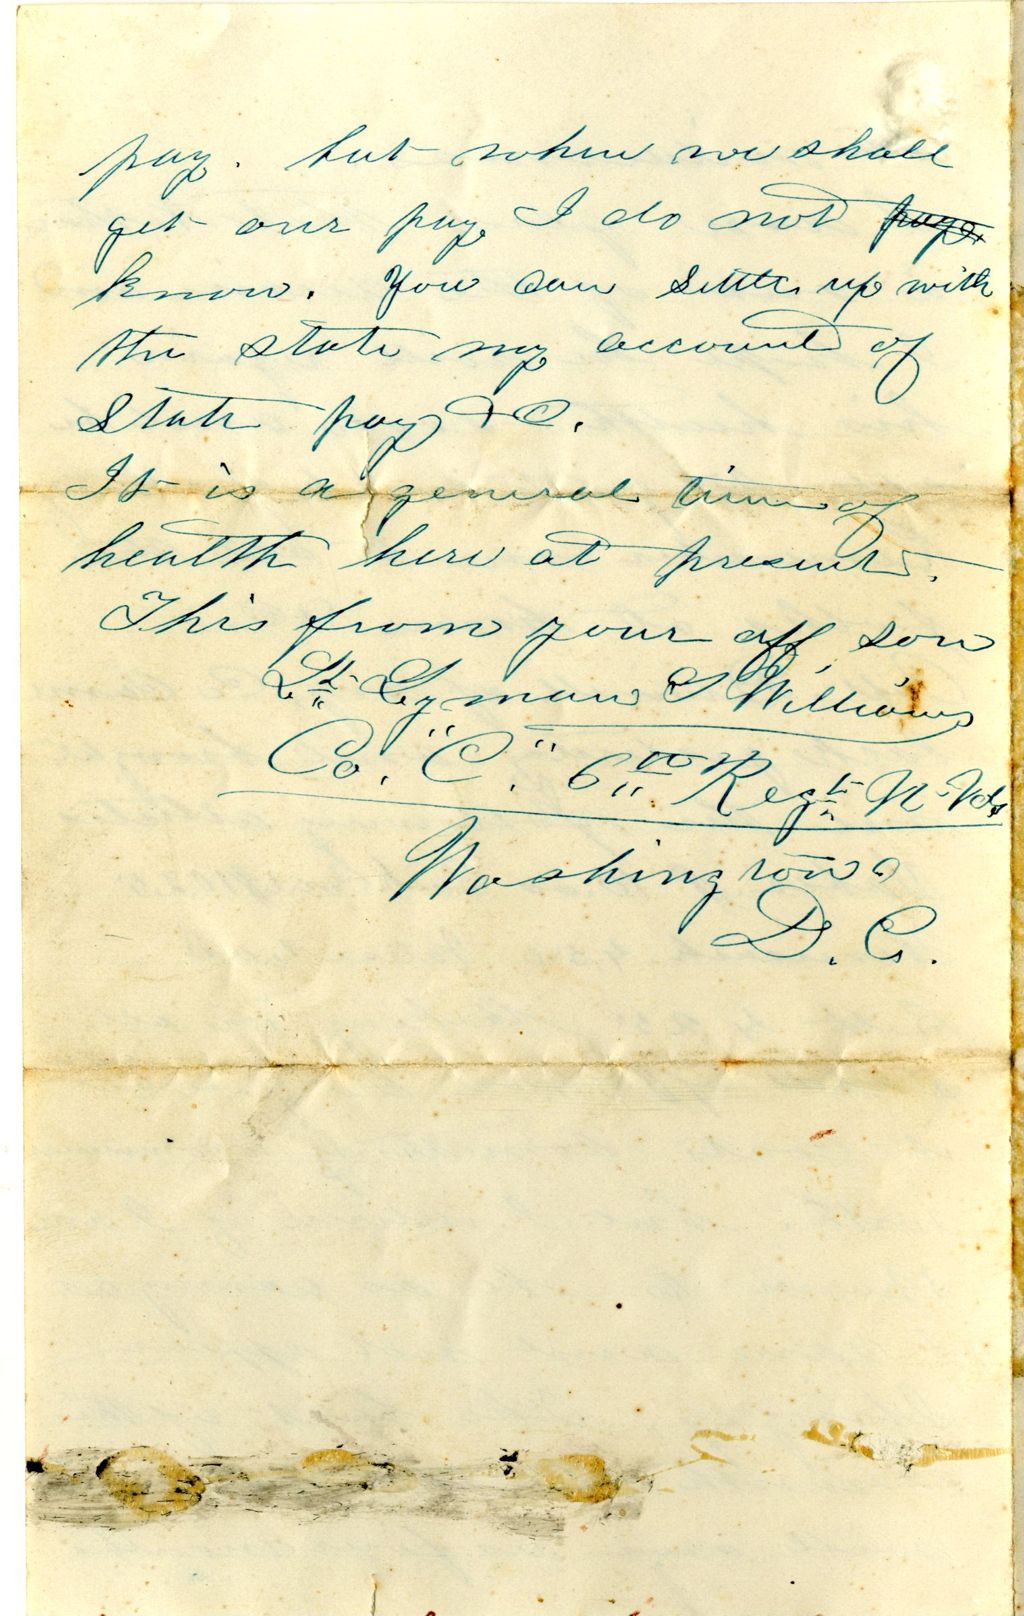 pay. but when we shall
get our pay I do not pays
know. You can settle up with
the state my account of
State pay & C.
It is a general time of
health here at present.
This from your aff, son
Lt Lyman S Williams
Co. "C." 6th Regt V. Vols
Washington
D. C.